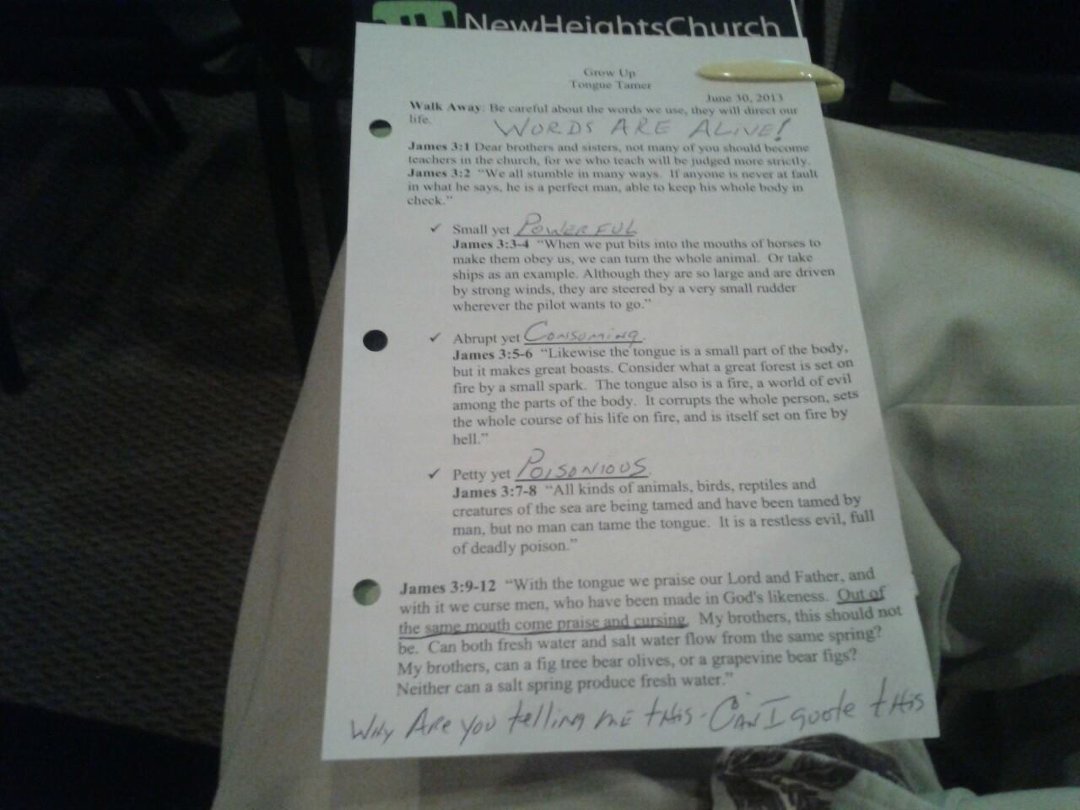 NewHeightsChurch
Grow Up
Tongue Tamer
June 30, 2013
Walk Away: Be careful about the words we use, they will direct our
life.
WORDS ARE ALIVE!
James 3:1 Dear brothers and sisters, not many of you should become
teachers in the church, for we who teach will be judged more strictly.
James 3:2 "We all stumble in many ways. If anyone is never at fault
in what he says, he is a perfect man, able to keep his whole body in
check."
✓ Small yet POWERFUL
James 3:3-4 "When we put bits into the mouths of horses to
make them obey us, we can turn the whole animal. Or take
ships as an example. Although they are so large and are driven
by strong winds, they are steered by a very small rudder
wherever the pilot wants to go."
✓ Abrupt yet Consuming.
James 3:5-6 "Likewise the tongue is a small part of the body,
but it makes great boasts. Consider what a great forest is set on
fire by a small spark. The tongue also is a fire, a world of evil
among the parts of the body. It corrupts the whole person, sets
the whole course of his life on fire, and is itself set on fire by
hell."
✓ Petty yet POISONIOUS.
James 3:7-8 "All kinds of animals, birds, reptiles and
creatures of the sea are being tamed and have been tamed by
man, but no man can tame the tongue. It is a restless evil, full
of deadly poison."
James 3:9-12 "With the tongue we praise our Lord and Father, and
with it we curse men, who have been made in God's likeness. Out of
the same mouth come praise and cursing. My brothers, this should not
be. Can both fresh water and salt water flow from the same spring?
My brothers, can a fig tree bear olives, or a grapevine bear figs?
Neither can a salt spring produce fresh water."
Why Are you telling me this - Can I quote this